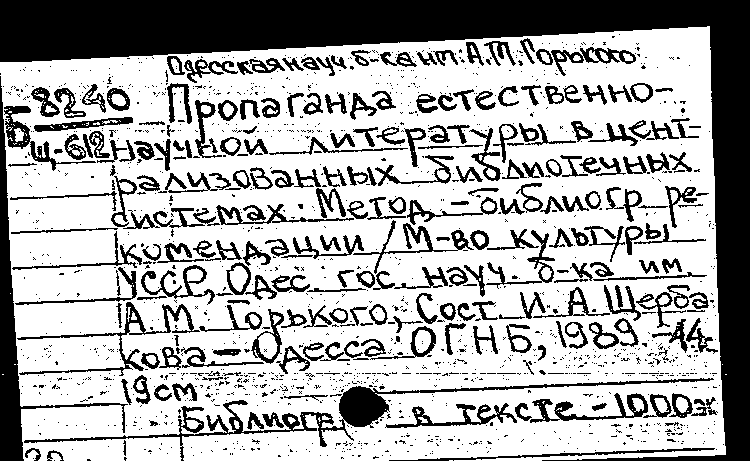 Одесская науч. б-ка им. А.М. Горького.
Б-8240 Пропаганда естественно-
Щ-612 научной литературы в цент-
рализованных библиотечных
системах: Метод.-библиогр ре-
комендации / М-во культуры
УССР, Одес. гос. науч. б-ка им.
А. М. Горького; Сост. И. А. Щерба-
кова - Одесса: ОГНБ, 1989. - 44 с
19 см
Библиогр. в тексте - 1000 эк